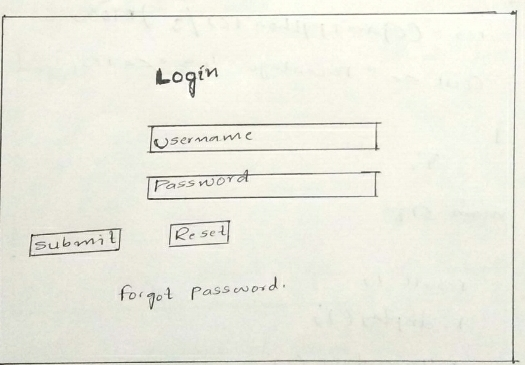 Login
Username
Password
Submit Reset
Forgot Password.